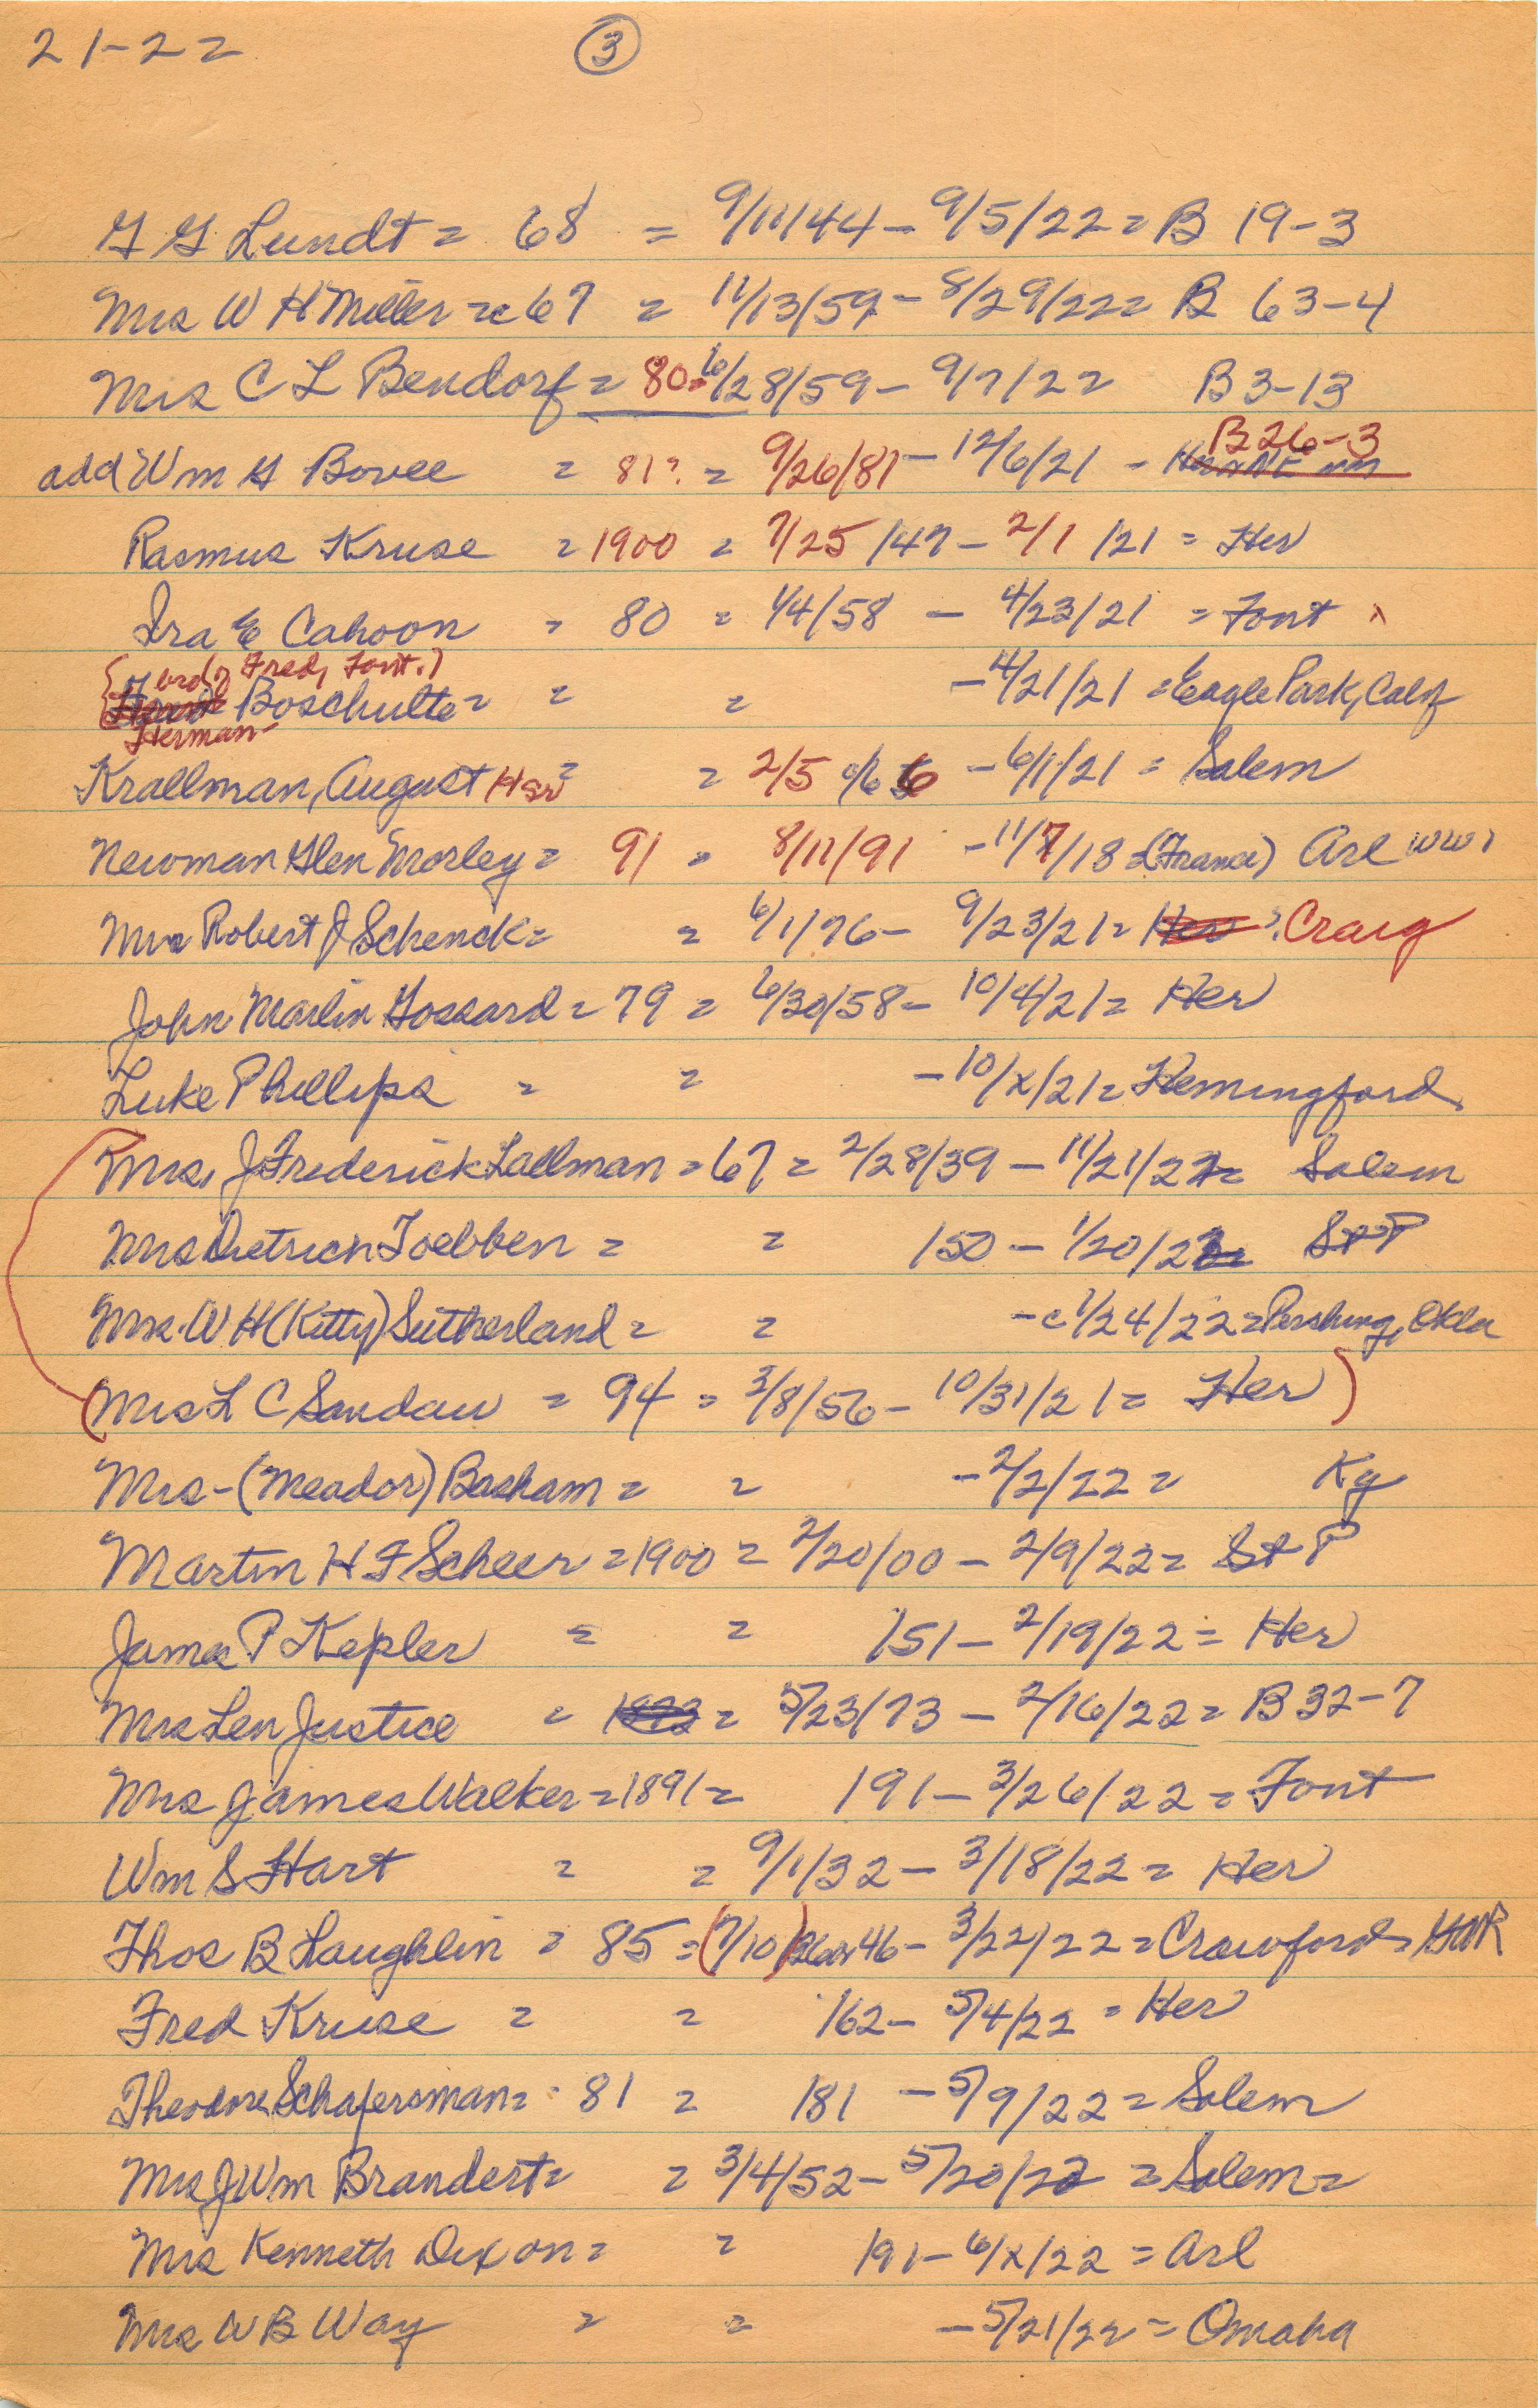 21-22 ③
G G Lundt = 68 = 9/11/44 - 9/5/22 = B 19-3
Mrs W H Miller = c67 = 11/13/59 - 8/29/22 = B 63-4
Mrs C L Bendorf = 80 = 6/28/59 - 9/7/22 B 3-13
add Wm G Bovee = 81? = 9/26/81 - 12/6/21 - B 26-3
Rasmus Kruse = 1900 = 7/25/47 - 2/1/21 = Her
Ira E Cahoon = 80 = 1/4/58 - 4/23/21 = Font
(bro of Fred, Font.)
Boschulte = = = - 4/21/21 = Eagle Park, Calif
Herman
Krallman, August Her = = 2/5/66 - 6/1/21 = Salem
Newman Glen Morley = 91 = 8/11/91 - 11/7/18 = (France) Arl WW1
Mrs Robert J Schenck = = 6/1/76 - 9/23/21 = Her ? Craig
John Marlin Gossard = 79 = 6/30/58 - 10/4/21 = Her
Luke Phillips = = - 10/x/21 = Hemingford
Mrs. J Frederick Lallman = 67 = 2/28/39 - 11/21/22 = Salem
Mrs Dietrich Toebben = = /50 - 1/20/22 = St P
Mrs. W H (Kitty) Sutherland = = - c 1/24/22 = Pershing, Okla
(Mrs L C Sandau = 94 = 3/8/56 - 10/31/21 = Her)
Mrs - (Meador) Basham = = - 2/2/22 = Ky
Martin H F Scheer = 1900 = 2/20/00 - 2/9/22 = St P
James P Kepler = = /51 - 2/19/22 = Her
Mrs Len Justice = 1872 = 5/23/73 - 2/16/22 = B 32-7
Mrs James Walker = 1891 = /91 - 3/26/22 = Font
Wm S Hart = = 9/1/32 - 3/18/22 = Her
Thos B Laughlin = 85 = (7/10) 46 - 3/22/22 = Crawford, GAR
Fred Kruse = = /62 - 5/4/22 = Her
Theodore Schafersman = 81 = /81 - 5/9/22 = Salem
Mrs J Wm Brandert = = 3/4/52 - 5/20/22 = Salem =
Mrs Kenneth Dixon = = /91 - 6/x/22 = Arl
Mrs W B Way = = - 5/21/22 = Omaha